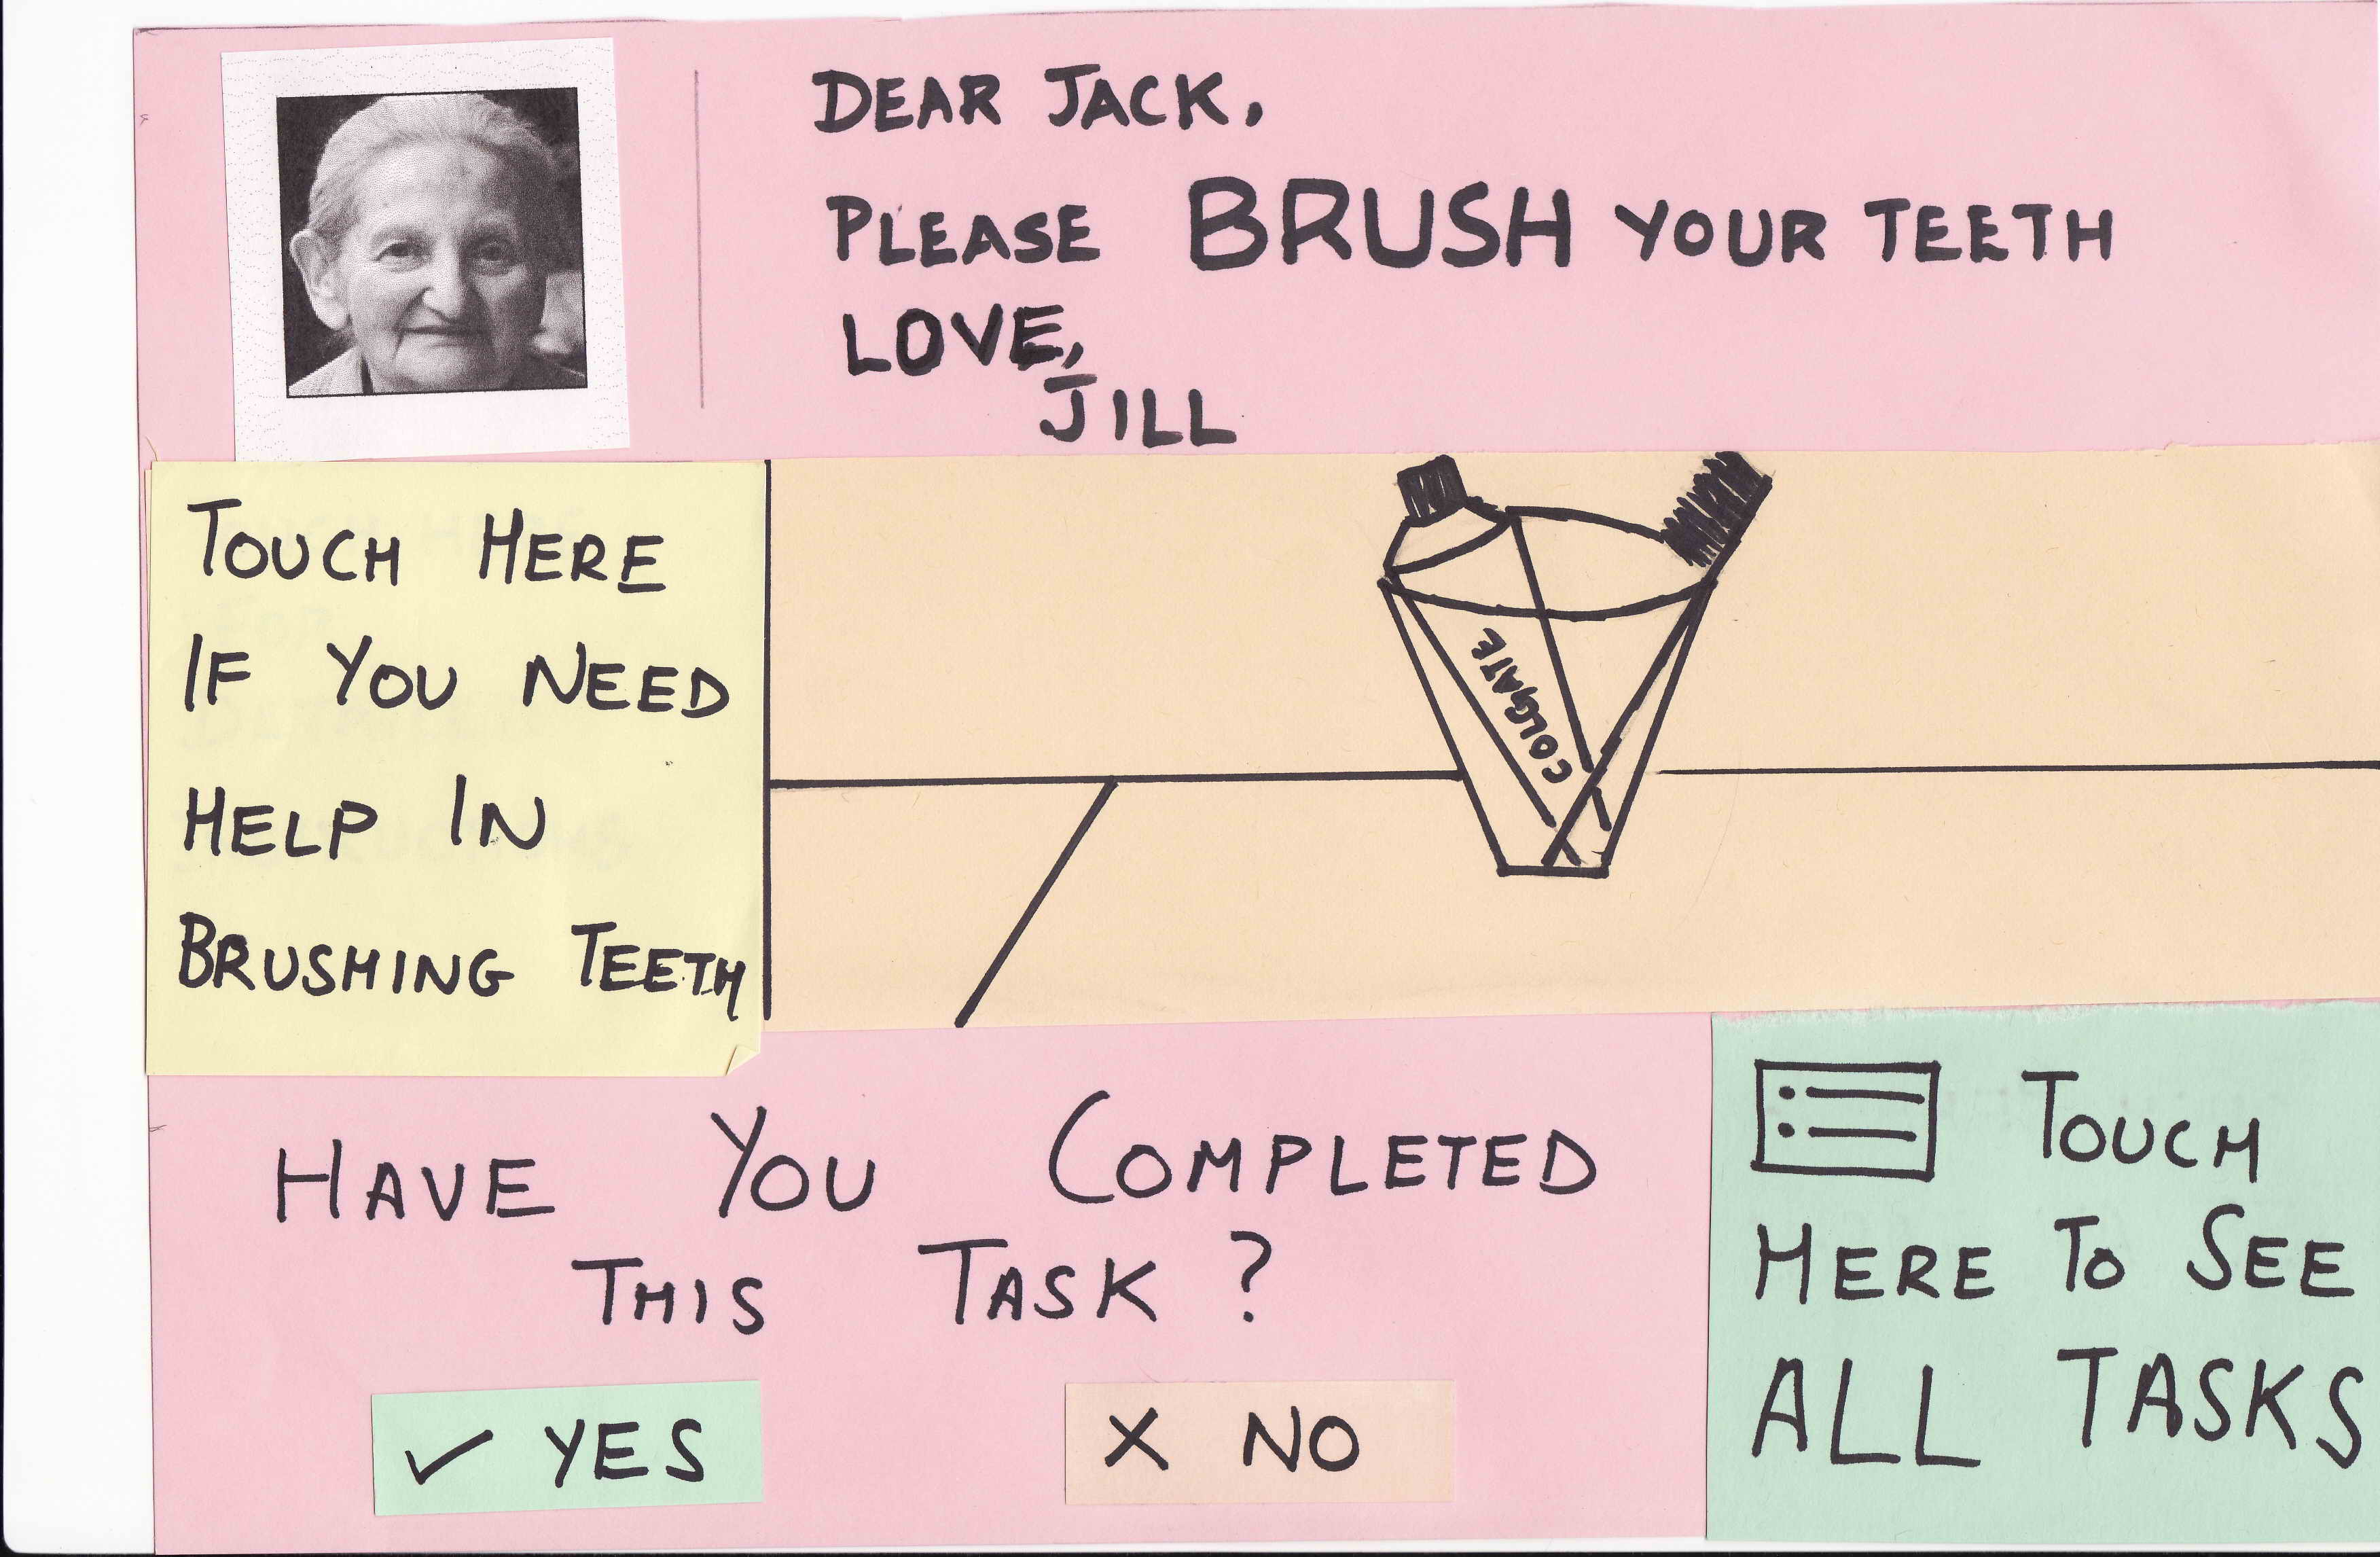 DEAR JACK,
PLEASE BRUSH YOUR TEETH
LOVE,
JILL
TOUCH HERE
IF YOU NEED
HELP IN
BRUSHING TEETH
COLGATE
HAVE YOU COMPLETED
THIS TASK ?
✓ YES
X NO
TOUCH
HERE TO SEE
ALL TASKS